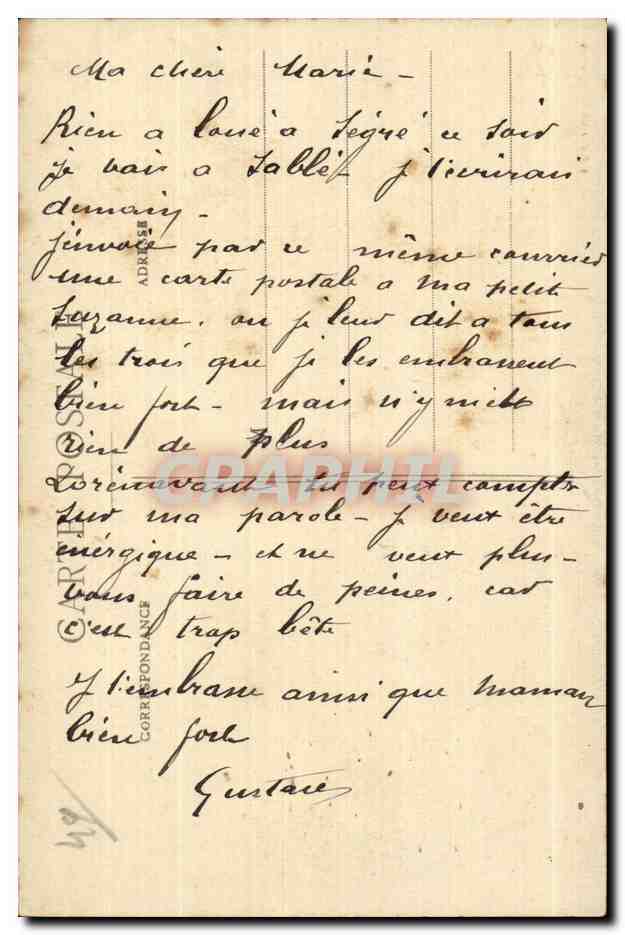 Ma chère Marie -
Rien a loué a Segré ce soir
je vais a Sablé - j t'ecrirai
demain -
j'envoie par ce même courrier
une carte postale a ma petit
Suzanne. ou je leur dit a tous
les trois que je les embrassent
bien fort - mais n'y mett
rien de plus
Dorénavant tu peut compter
sur ma parole - Je veut être
énérgique - et ne veut plus -
vous faire de peines, car
c'est trop bête
J t'embrasse ainsi que Maman
bien fort
Gustave
CARTE POSTALE
CORRESPONDANCE
ADRESSE
CARTE GRAPHIL